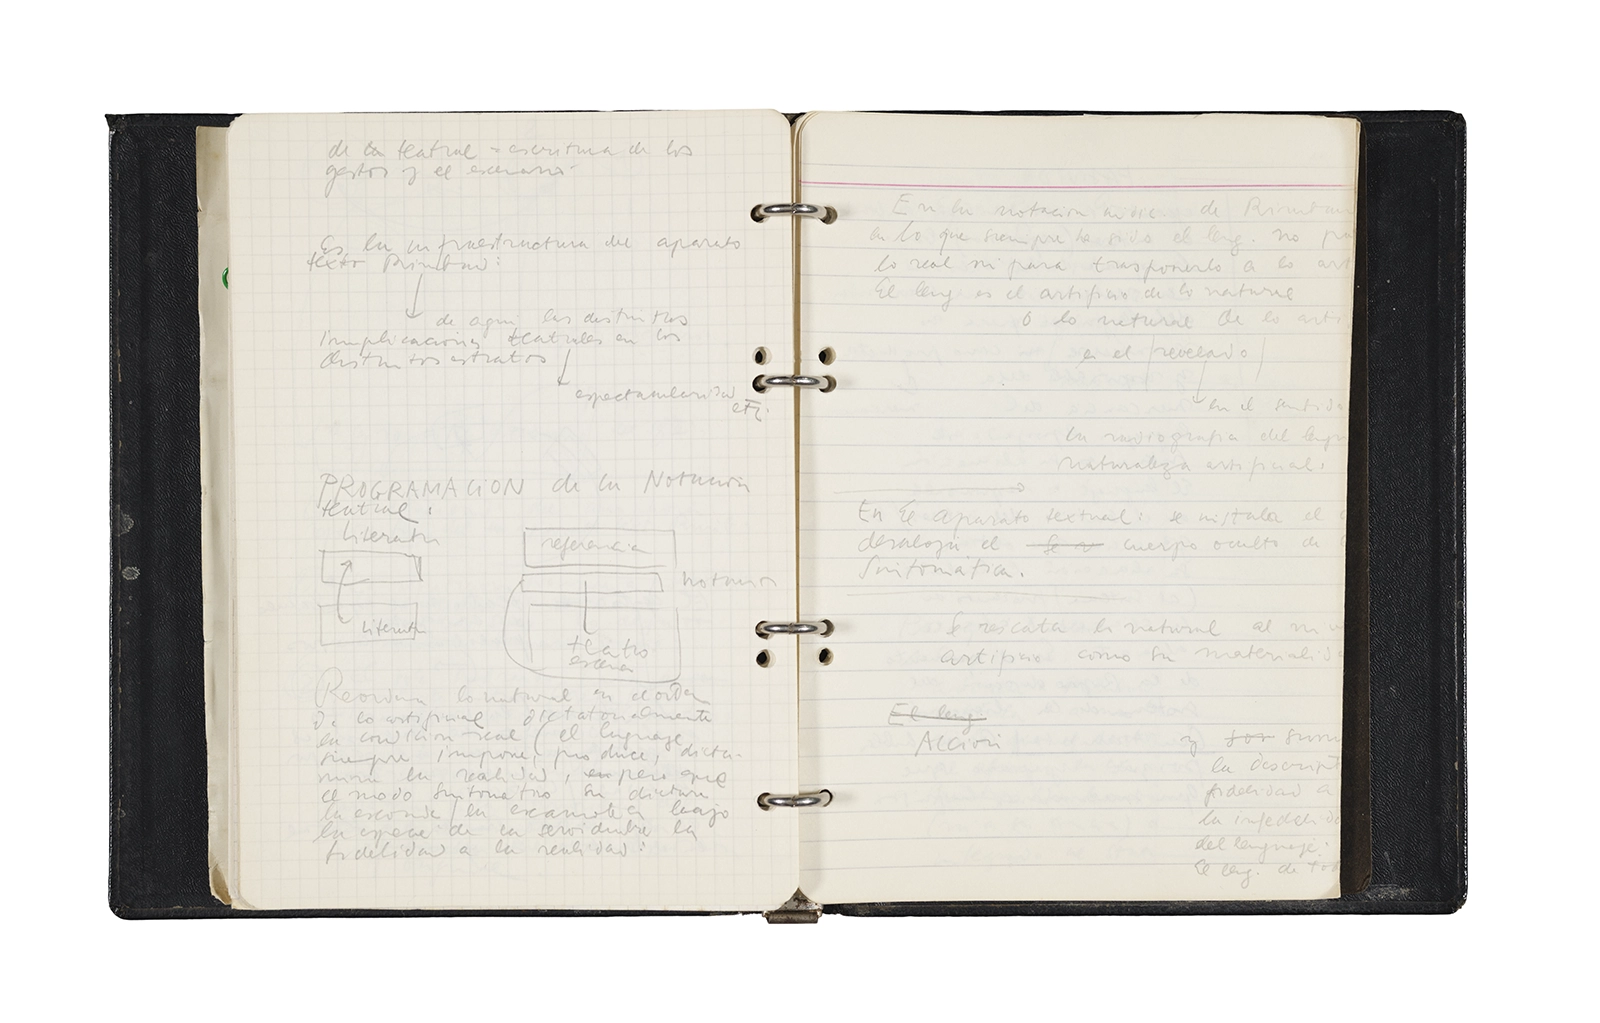 de la teatral = escritura de los
gestos y el escenario
Es la infraestructura del aparato
texto Rimbaud:
de aquí las distintas
implicaciones teatrales en los
distintos estratos
espectacularidad
etc.
PROGRAMACION de la Notación
teatral:
literatu
referencia
notación
literatu
teatro
escena
Reordena lo natural en el orden
de lo artificial dictatorialmente
en condición real (el lenguaje
siempre impone, produce, dicta-
mina la realidad, pero que
el modo sintomático su dictura
la esconde, la escamotea bajo
la especie de la servidumbre la
fidelidad a la realidad:
En la notación de Rimbau
en lo que siempre ha sido el leng. no pa
lo real ni para trasponerlo a lo art
El leng es el artificio de lo natural
o lo natural de lo arti
es el revelado
en el sentido
la radiografia del lengu
naturaleza artificial.
En El aparato textual: se instala el c
desaloja el cuerpo oculto de
Sintomática.
Se rescata lo natural al
artificio como su materialida
El leng
Acción
y sor sum
la descript
fidelidad a
la infidelida
del lenguaje:
El leng. de tod